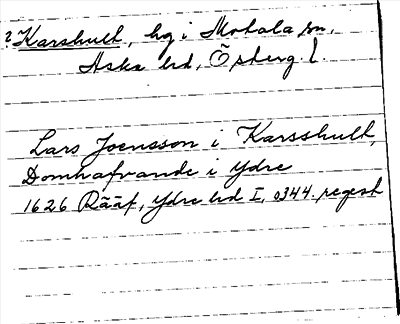 ? Karshult, hg i Motala sn,
Aska hd, Ösberg. l.
Lars Joensson i Karsshult,
Domhafvande i Ydre
1626 Rääf, Ydre hd I, 0344. regest